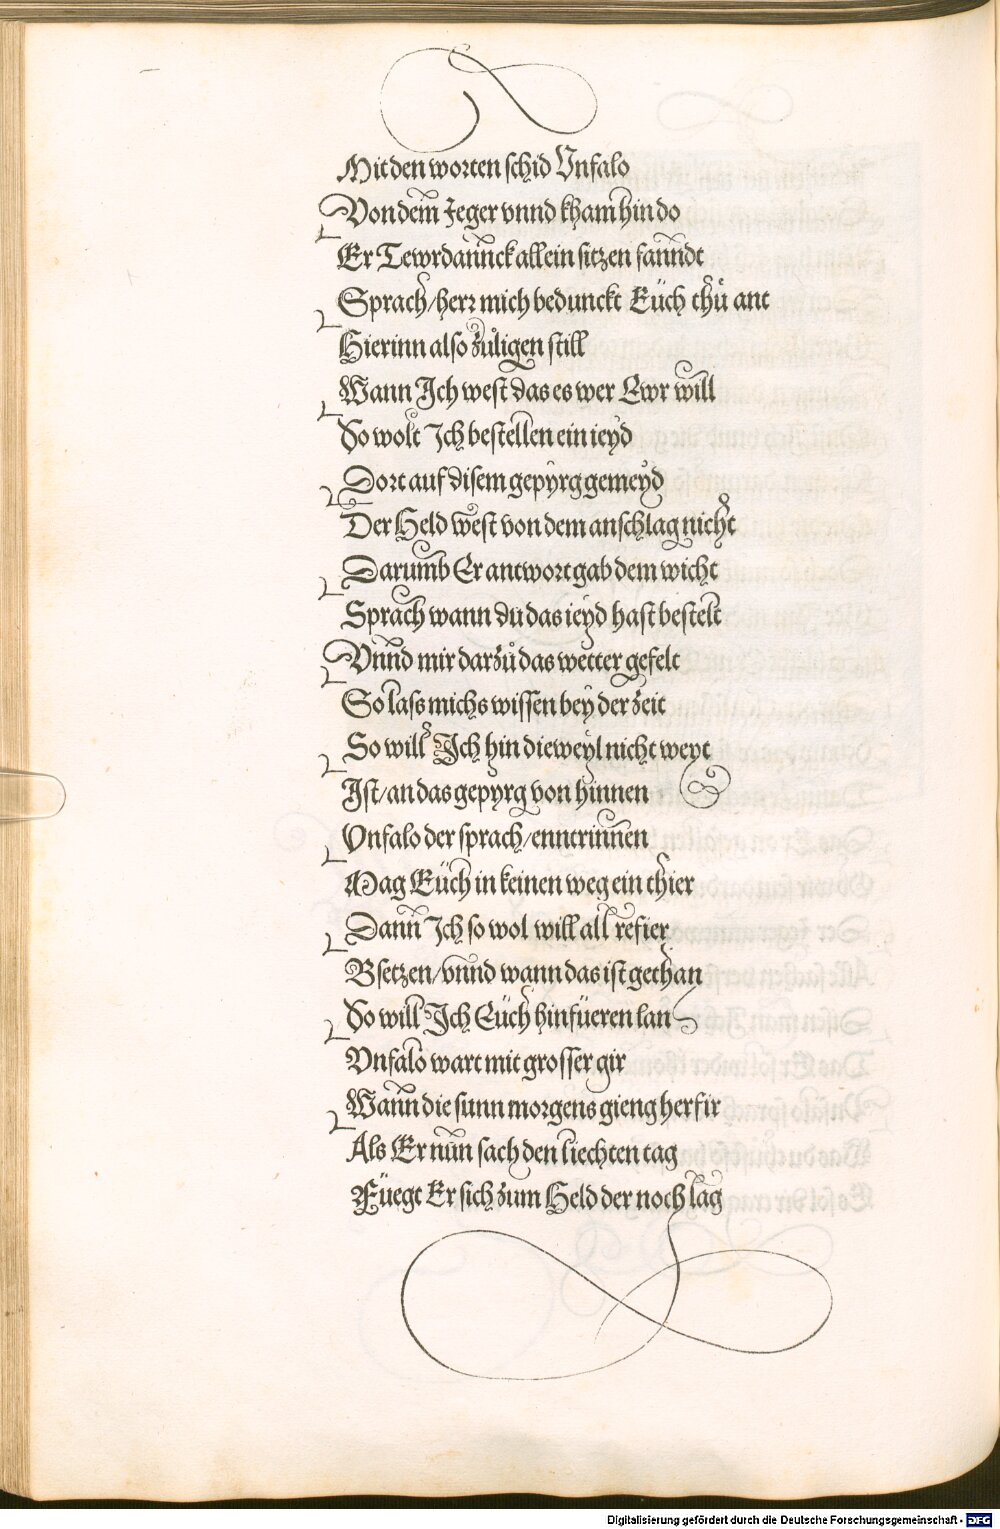 Mit den worten schid Vnfalo
Von dem Jeger vnnd kham hin do
Er Tewrdannck allein sitzen fanndt
Sprach/herr mich bedunckt Eüch thů ant
Hierinn also zůligen still
Wann Ich west das es wer Ewr will
So wolt Ich bestellen ein ieyd
Dort auf disem gepyrg gemeyd
Der Held west von dem anschlag nicht
Darumb Er antwort gab dem wicht
Sprach wann du das ieyd hast bestelt
Vnnd mir darzů das wetter gefelt
So lass michs wissen bey der zeit
So will Ich hin dieweyl nicht weyt
Ist/an das gepyrg von hinnen
Vnfalo der sprach/enntrinnen
Mag Eüch in keinen weg ein thier
Dann Ich so wol will all refier
Bsetzen/vnnd wann das ist gethan
So will Ich Eüch hinfüeren lan
Vnfalo wart mit grosser gir
Wann die sunn morgens gieng herfir
Als Er nun sach den liechten tag
Füegt Er sich zum Held der noch lag
Digitalisierung gefördert durch die Deutsche Forschungsgemeinschaft - DFG